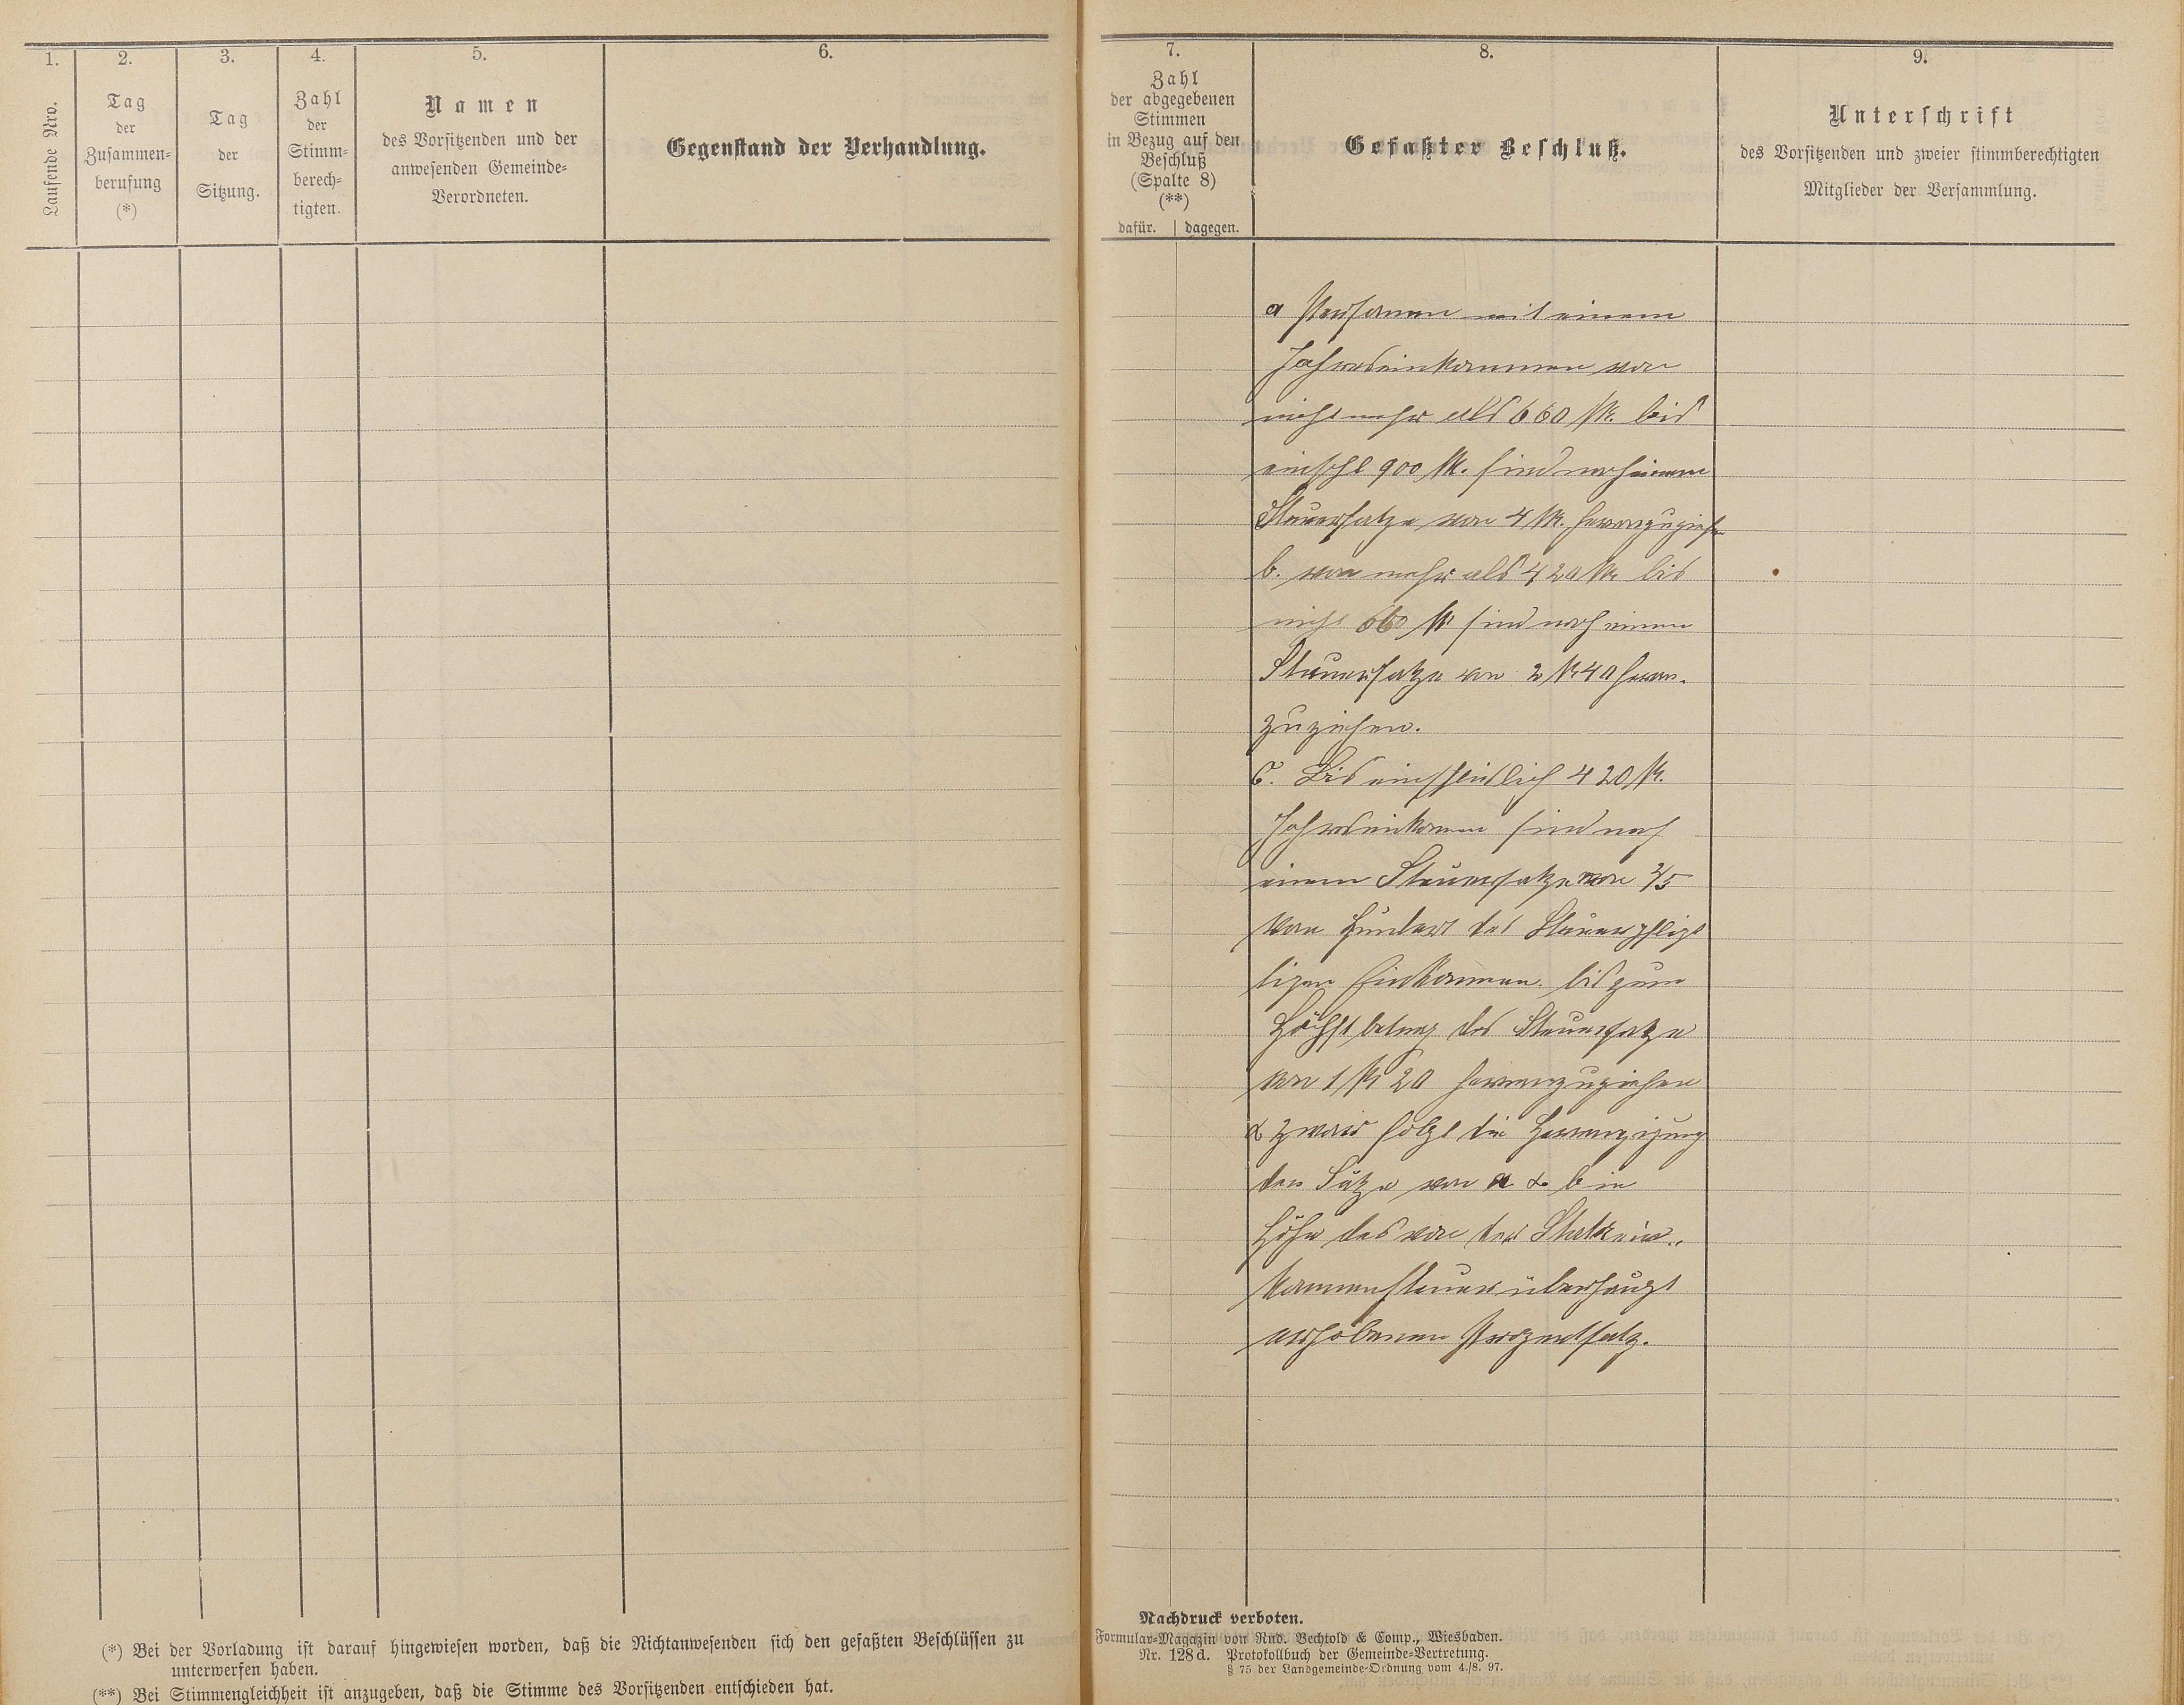 1.
Laufende Nro.
2.
Tag
der
Zusammen-
berufung
(*)
3.
Tag
der
Sitzung.
4.
Zahl
der
Stimm-
berech-
tigten.
5.
Namen
des Vorsitzenden und der
anwesenden Gemeinde-
Verordneten.
6.
Gegenstand der Verhandlung.
7.
Zahl
der abgegebenen
Stimmen
in Bezug auf den
Beschluß
(Spalte 8)
(**)
dafür. dagegen.
8.
Gefaßter Beschluß.
9.
Unterschrift
des Vorsitzenden und zweier stimmberechtigten
Mitglieder der Versammlung.
a Personen mit einem
Jahreseinkommen von
nicht mehr als 660 M. bis
einschl 900 M. sind nach einem
Steuersatze von 4 M. heranzuziehen
b. von mehr als 420 M. bis
nicht 660 M sind nach einem
Steuersatze von 2 M 40 heran-
zuziehen.
c. Bis einschließlich 420 M.
Jahreseinkommen sind nach
einem Steuersatze von 2/5
vom Hundert des Steuerpflich
tigen Einkommen bis zum
Höchstbetrag des Steuersatze
von 1 M 20 heranzuziehen
& zwar folgt die Heranziehung
der Sätze von a & b in
Höhe des von der Staatsein-
kommensteuer überhaupt
erhobenen Prozentsatz.
(*) Bei der Vorladung ist darauf hingewiesen worden, daß die Nichtanwesenden sich den gefaßten Beschlüssen zu
unterwerfen haben.
(**) Bei Stimmengleichheit ist anzugeben, daß die Stimme des Vorsitzenden entschieden hat.
Nachdruck verboten.
Formular-Magazin von Rud. Bechtold & Comp., Wiesbaden.
Nr. 128 d. Protokollbuch der Gemeinde-Vertretung.
§ 75 der Landgemeinde-Ordnung vom 4./8. 97.